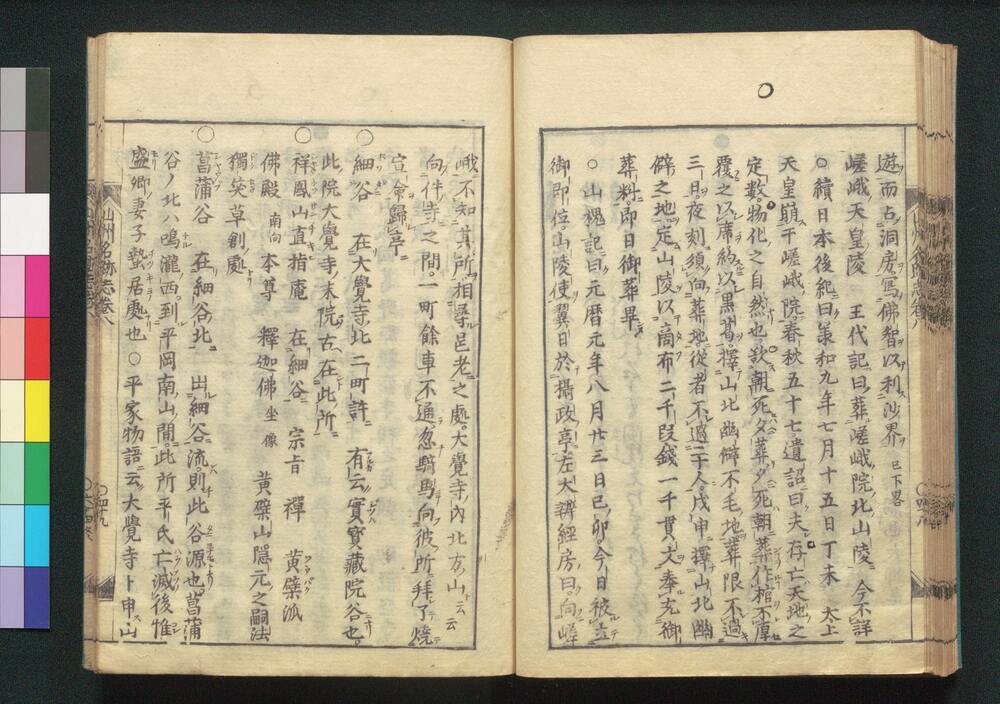 遊而占洞房寫佛智以利沙界 已下畧
嵯峨天皇陵 王代記曰葬嵯峨院北山陵 今不詳
○續日本後紀曰羕和九年七月十五日丁未 太上
天皇崩于嵯峨院春秋五十七遺詔曰夫存亡天地之
定数物化之自然也欲朝死夕葬夕死朝葬作棺不厚
覆之以席約以黒葛擇山北幽僻不毛地葬限不過
三日夜刻須向葬地從者不過 人戌申擇山北幽
僻之地定山陵以商布二千段錢一千貫文奉充御
葬料即日御葬畢
○山槐記曰元暦元年八月廿三日已卯今日被立
御即位山陵使翼日於攝政亭左大辨經房曰向嵯
峨不知其所相尋邑老之處大覺寺内北方山云云
向件寺之間一町餘車不通忽騎馬向彼所拜了燒
宣命歸
○細谷 在大覺寺北二町許 有云實寳藏院谷也
此院大覺寺末院古在此所
○祥鳳山直指庵 在細谷 宗旨 禪 黄檗派
佛殿 南向 本尊 釋迦佛 坐像 黄檗山隱元之嗣法
獨笑草創處
○菖蒲谷 在細谷北 出細谷流則此谷源也菖蒲
谷ノ北ハ鳴瀧西到平岡南山間此所平氏亡滅後惟
盛卿妻子蟄居處也 ○平家物語云大覺寺ト申ス山
山州名跡志卷八